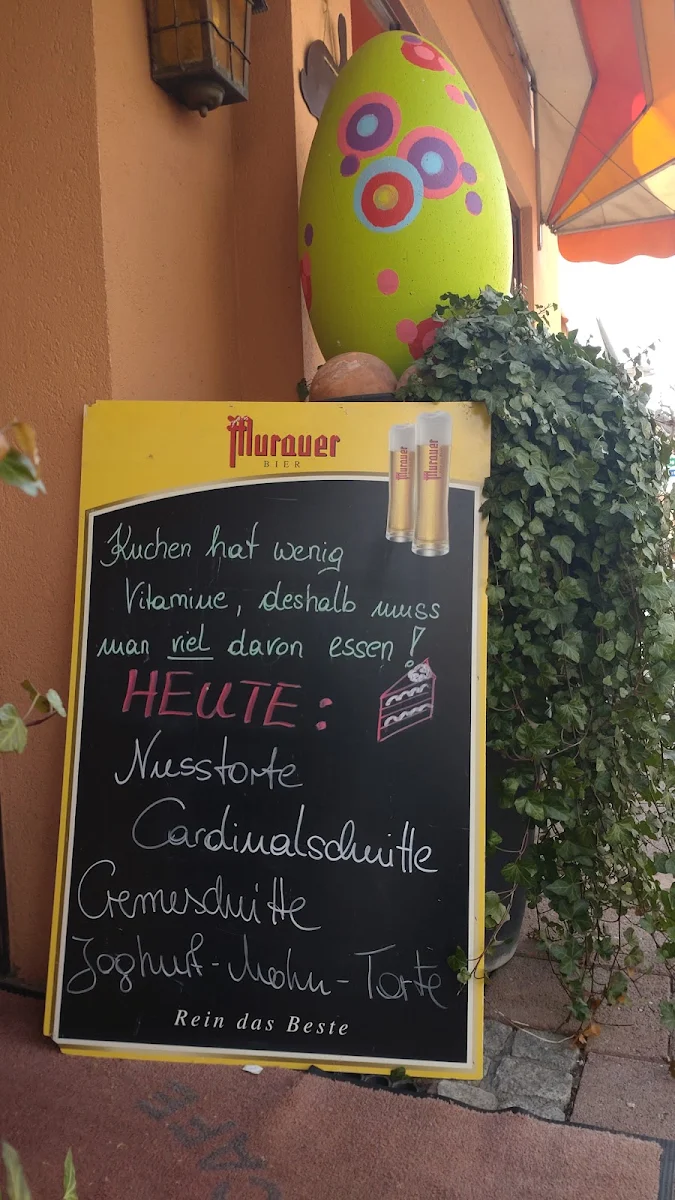 Murauer
BIER
Murauer
Murauer
Kuchen hat wenig
Vitamine, deshalb muss
man viel davon essen!
HEUTE:
Nusstorte
Cardinalschnitte
Cremeschnitte
Joghurt-Mohn-Torte
Rein das Beste
CAFE